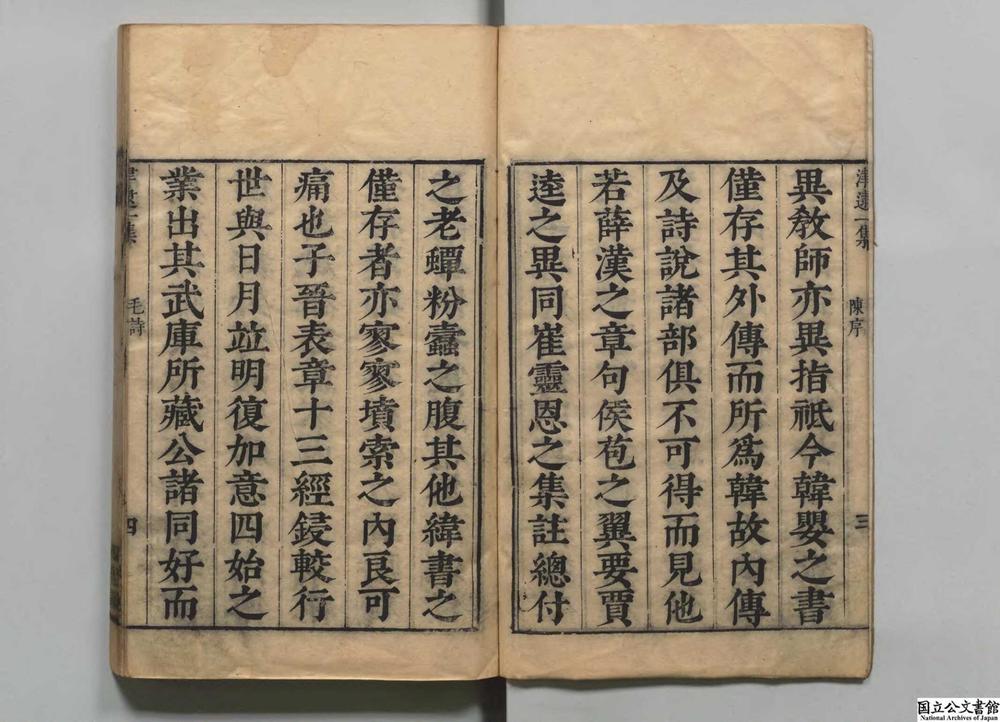 津逮一集 陳序 三
異敎師亦異指祗今韓嬰之書
僅存其外傳而所爲韓故內傳
及詩說諸部俱不可得而見他
若薛漢之章句侯苞之翼要賈
逵之異同崔靈恩之集註總付
之老蟫粉蠹之腹其他緯書之
僅存者亦寥寥墳索之內良可
痛也子晉表章十三經鋟較行
世與日月竝明復加意四始之
業出其武庫所藏公諸同好而
津逮一集 毛詩 四
国立公文書館
National Archives of Japan